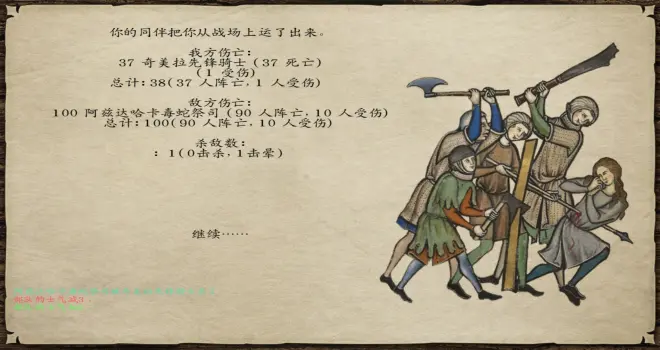 你的同伴把你从战场上运了出来。
我方伤亡:
37 奇美拉先锋骑士 (37 死亡)
(1 受伤)
总计: 38(37 人阵亡, 1 人受伤)
敌方伤亡:
100 阿兹达哈卡毒蛇祭司 (90 人阵亡, 10 人受伤)
总计: 100(90 人阵亡, 10 人受伤)
杀敌数:
: 1(0击杀, 1击晕)
继续……